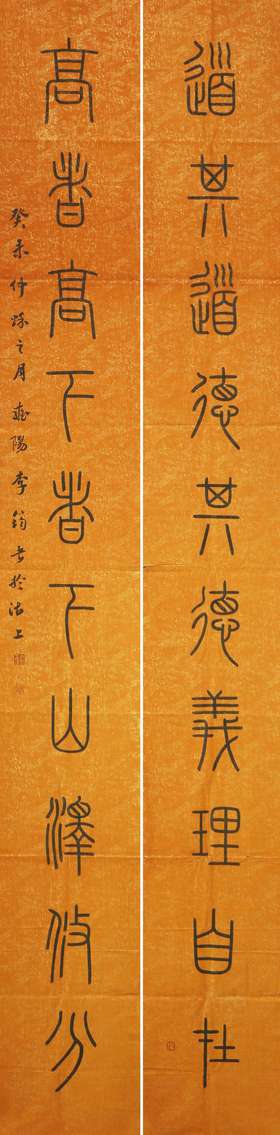 道其道德其德義理自在
高者高下者下山澤攸分
癸未仲秋之月陽李書於沽上